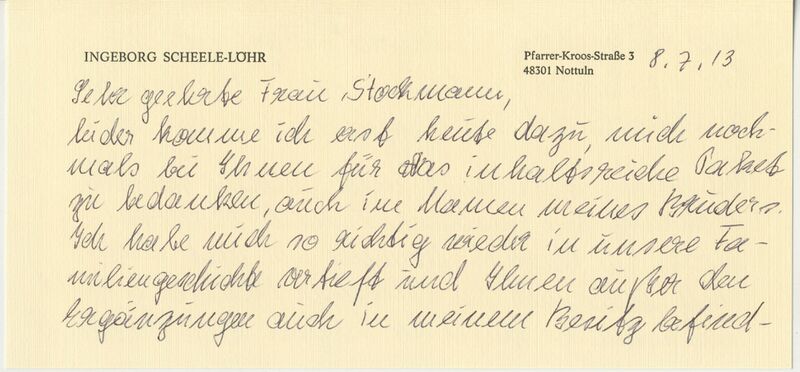 INGEBORG SCHEELE-LÖHR
Pfarrer-Kroos-Straße 3
48301 Nottuln
8.7.13
Sehr geehrte Frau Stockmann,
leider komme ich erst heute dazu, mich noch-
mals bei Ihnen für das inhaltsreiche Paket
zu bedanken, auch im Namen meines Bruders.
Ich habe mich so richtig wieder in unsere Fa-
miliengeschichte vertieft und Ihnen außer den
Ergänzungen auch in meinem Besitz befind-